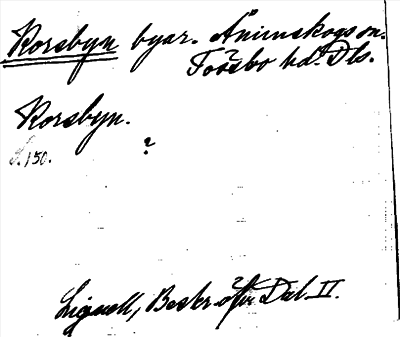 Korsbyn byar. Ånimskogs sn.
Tössbo hd. Dls.
Korsbyn.
S. 150.
?
Lignell, Beskr. öfver Dal. II.